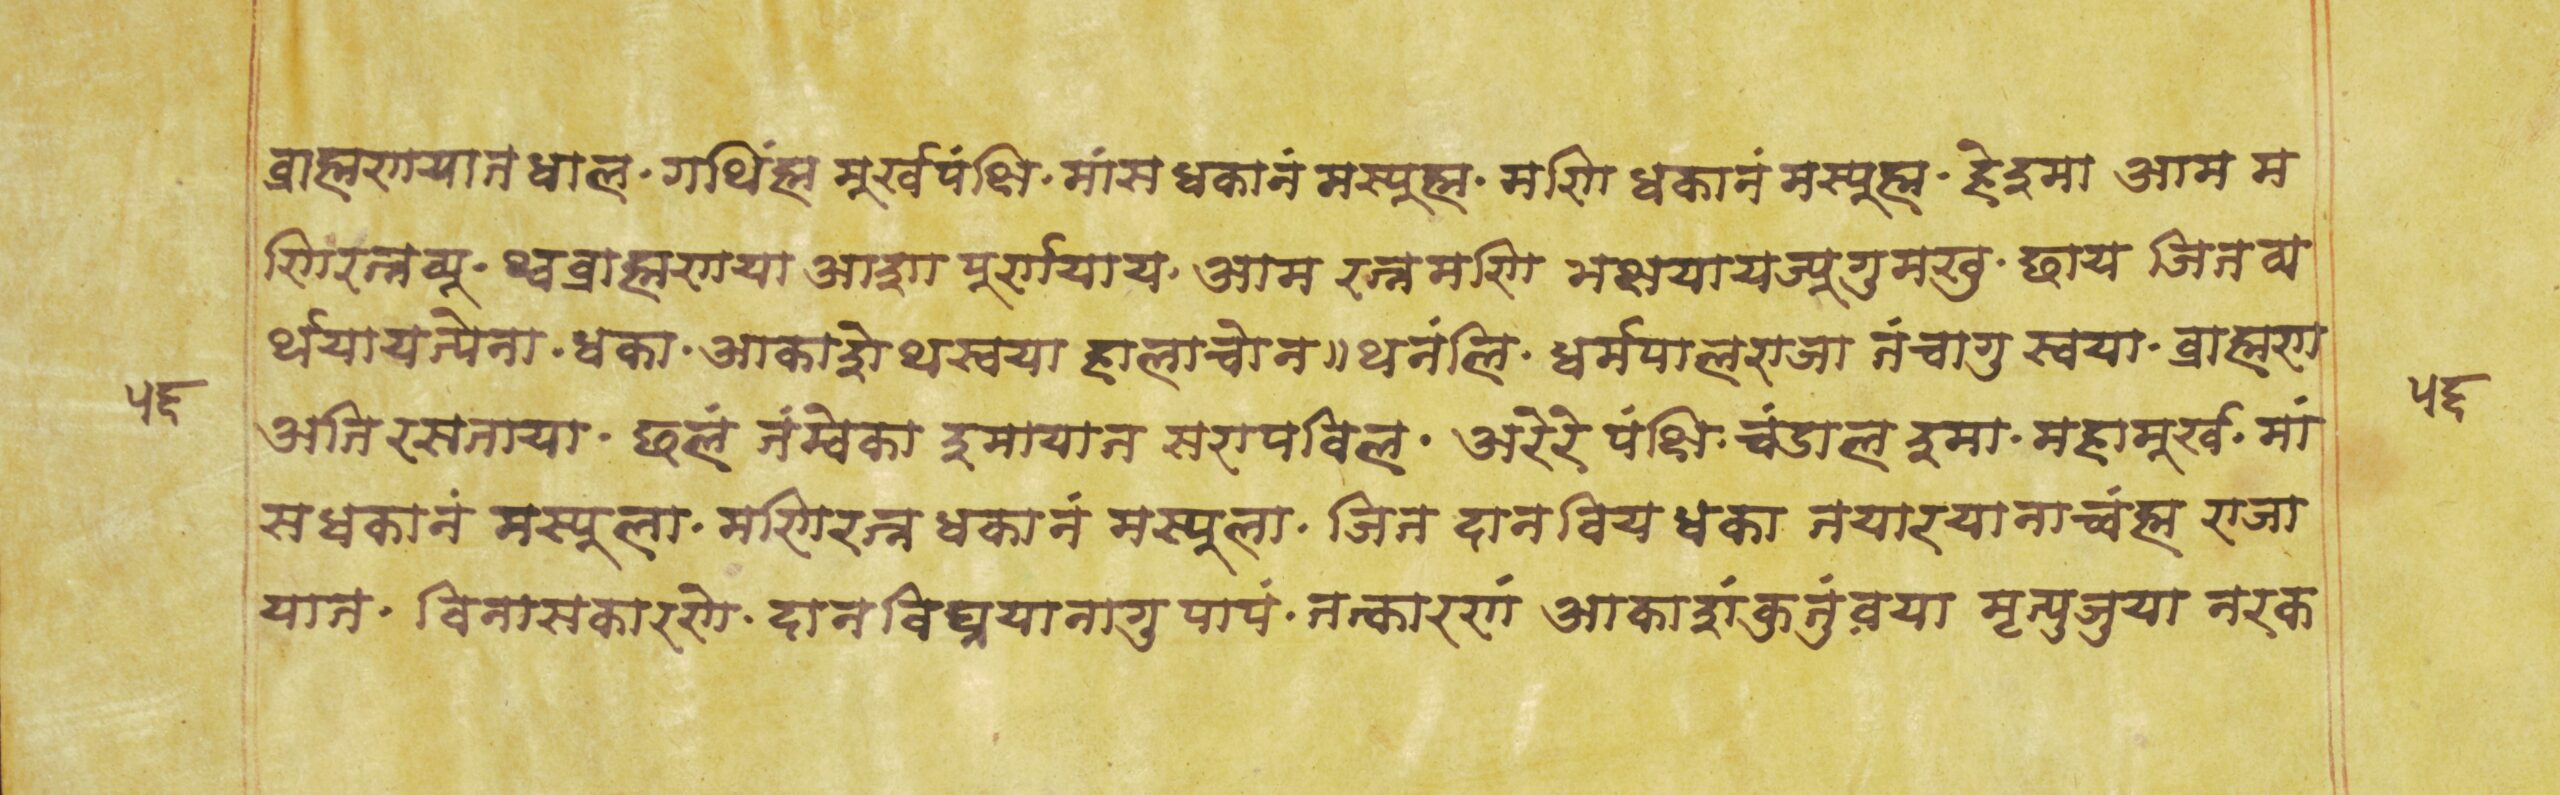 ब्राह्मणयात धाल· गथिंह्म मूर्खपंक्षि· मांस धकानं मस्यूह्म· मणि धकानं मस्यूह्म· हे इमा आम म
णिरत्नव्यू· थ्व ब्राह्मणया आज्ञा पूर्णयाय· आम रत्नमणि भक्षयायज्यूगु मखु· छाय जित व्य
र्थयायत्येना· धका· आकाशे थस्वया हालाचोन॥ थनंलि· धर्मपालराजा नंचागु स्वया· ब्राह्मण
अतिरसताया· छलं नंम्वेका इमायात सरापविल· अरेरे पंक्षि· चंडाल इमा· महामूर्ख· मां
स धकानं मस्यूला· मणिरत्न धकानं मस्यूला· जित दान विय धका तयारयानाच्वंह्म राजा
यात· विनासकारणे· दान विघ्नयानागु पापं· तत्कारणं आकाशं कुतुंवया मृत्युजुया नरक
५६ ५६